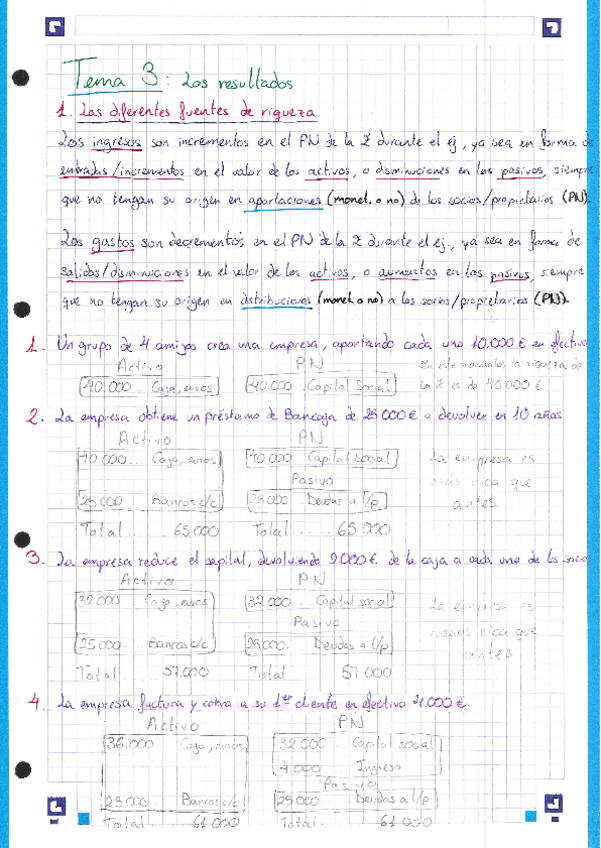 Tema 3: Los resultados
1. Las diferentes fuentes de riqueza
Los ingresos son incrementos en el PN de la Σ durante el ej., ya sea en forma de
entradas/incrementos en el valor de los activos, o disminuciones en los pasivos, siempre
que no tengan su origen en aportaciones (monet. o no) de los socios/propietarios (PN).
Los gastos son decrementos en el PN de la Σ durante el ej., ya sea en forma de
salidas/disminuciones en el valor de los activos, o aumentos en los pasivos, siempre
que no tengan su origen en distribuciones (monet. o no) a los socios/propietarios (PN).
1. Un grupo de 4 amigos crea una empresa, aportando cada uno 10.000 € en efectivo
Activo PN
40.000 ... Caja, euros 40.000 ... Capital Social
En este momento, la riqueza de
la Σ es de 40.000 €
2. La empresa obtiene un préstamo de Bancaja de 25.000 € a devolver en 10 años
Activo PN
40.000 ... Caja, euros 40.000 Capital social
Pasivo
25.000 Bancos c/c 25.000 Deudas a l/p
Total .... 65.000 Total ..... 65.000
La empresa es
más rica que
antes
3. La empresa reduce el capital, devolviendo 2.000 € de la caja a cada uno de los socios
Activo PN
32.000 Caja, euros 32.000 Capital social
Pasivo
25.000 .. Bancos c/c 25.000 .. Deudas a l/p
Total 57.000 Total 57.000
La empresa es
menos rica que
antes
4. La empresa factura y cobra a su 1er cliente en efectivo 4.000 €.
Activo PN
36.000 Caja, euros 32.000 .. Capital social
4.000 ... Ingreso
Pasivo
25.000 .. Bancos c/c 25.000 ... Deudas a l/p
Total ... 61.000 Total ..... 61.000